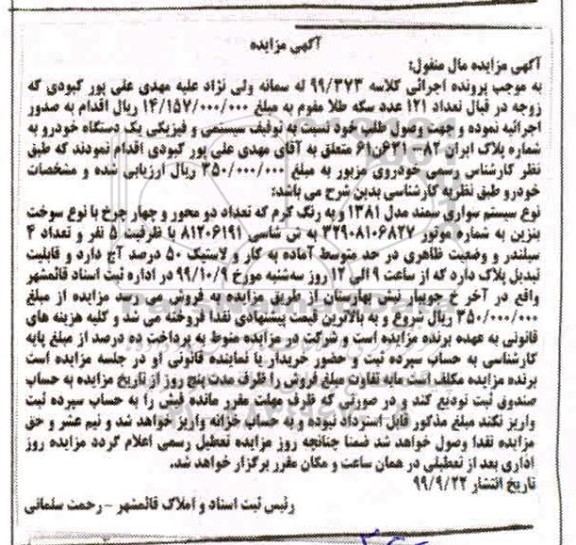 آگهی مزایده
آگهی مزایده مال منقول:
به موجب پرونده اجرائی کلاسه ۹۹/۳۷۳ له سمانه ولی نژاد علیه مهدی علی پور کبودی که
زوجه در قبال تعداد ۱۲۱ عدد سکه طلا مقوم به مبلغ ۱۴/۱۵۷/۰۰۰/۰۰۰ ریال اقدام به صدور
اجرائیه نموده و جهت وصول طلب خود نسبت به توقیف سیستمی و فیزیکی یک دستگاه خودرو به
شماره پلاک ایران ۸۲- ۶۲۱ن۶۱ متعلق به آقای مهدی علی پور کبودی اقدام نمودند که طبق
نظر کارشناس رسمی خودروی مزبور به مبلغ ۳۵۰/۰۰۰/۰۰۰ ریال ارزیابی شده و مشخصات
خودرو طبق نظر به کارشناسی بدین شرح می باشد:
نوع سیستم سواری سمند مدل ۱۳۸۱ و به رنگ کرم که تعداد دو محور و چهار چرخ با نوع سوخت
بنزین به شماره موتور ۳۲۹۰۸۱۰۶۸۲۷ به ش شاسی ۸۱۲۰۶۱۹۱ با ظرفیت ۵ نفر و تعداد ۴
سیلندر و وضعیت ظاهری در حد متوسط آماده به کار و لاستیک ۵۰ درصد آج دارد و قابلیت
تبدیل پلاک دارد که از ساعت ۹ الی ۱۲ روز سه‌شنبه مورخ ۹۹/۱۰/۹ در اداره ثبت اسناد قائمشهر
واقع در آخر خ جویبار نبش بهارستان از طریق مزایده به فروش می رسد مزایده از مبلغ
۳۵۰/۰۰۰/۰۰۰ ریال شروع و به بالاترین قیمت پیشنهادی نقدا فروخته می شد و کلیه هزینه های
قانونی به عهده برنده مزایده است و شرکت در مزایده منوط به پرداخت ده درصد از مبلغ پایه
کارشناسی به حساب سپرده ثبت و حضور خریدار یا نماینده قانونی او در جلسه مزایده است
برنده مزایده مکلف است مابه تفاوت مبلغ فروش را ظرف مدت پنج روز از تاریخ مزایده به حساب
صندوق ثبت تودیع کند و در صورتی که ظرف مهلت مقرر مانده فیش را به حساب سپرده ثبت
واریز نکند مبلغ مذکور قابل استرداد نبوده و به حساب خزانه واریز خواهد شد و نیم عشر و حق
مزایده نقدا وصول خواهد شد ضمنا چنانچه روز مزایده تعطیل رسمی اعلام گردد مزایده روز
اداری بعد از تعطیلی در همان ساعت و مکان مقرر برگزار خواهد شد.
تاریخ انتشار ۹۹/۹/۲۲
رئیس ثبت اسناد و املاک قائمشهر - رحمت سلمانی